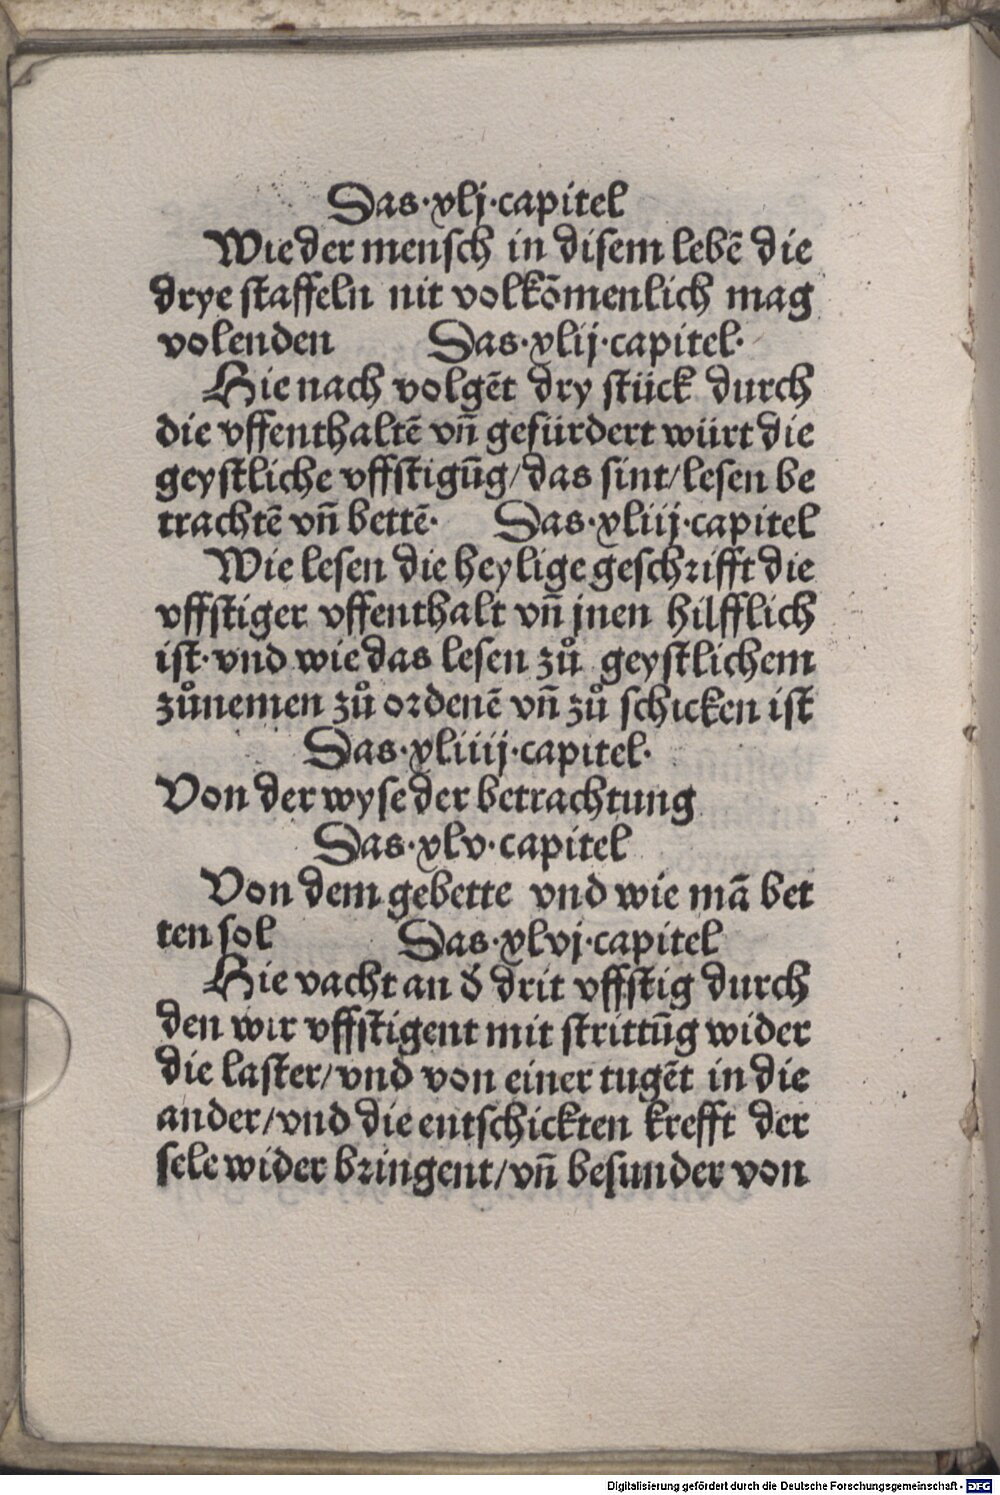 Das·xlj·capitel
Wie der mensch in disem lebē die
drye staffeln nit volkōmenlich mag
volenden Das·xlij·capitel·
Hie nach volgēt dry stück durch
die vffenthaltē vn̄ gefürdert würt die
geystliche vffstigūg/das sint/lesen be
trachtē vn̄ bettē· Das·xliij·capitel
Wie lesen die heylige geschrifft die
vffstiger vffenthalt vn̄ jnen hilfflich
ist·vnd wie das lesen zů geystlichem
zůnemen zů ordenē vn̄ zů schicken ist
Das·xliiij·capitel·
Von der wyse der betrachtung
Das·xlv·capitel
Von dem gebette vnd wie mā bet
ten sol Das·xlvj·capitel
Hie vacht an d̄ drit vffstig durch
den wir vffstigent mit strittūg wider
die laster/vnd von einer tugēt in die
ander/vnd die entschickten krefft der
sele wider bringent/vn̄ besunder von
Digitalisierung gefördert durch die Deutsche Forschungsgemeinschaft - DFG